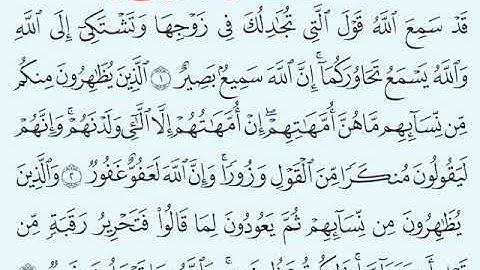 قَدْ سَمِعَ اللَّهُ قَوْلَ الَّتِي تُجَٰدِلُكَ فِي زَوْجِهَا وَتَشْتَكِيٓ إِلَى اللَّهِ
وَاللَّهُ يَسْمَعُ تَحَاوُرَكُمَآ ۚ إِنَّ اللَّهَ سَمِيعٌۢ بَصِيرٌ ١ الَّذِينَ يُظَٰهِرُونَ مِنكُم
مِّن نِّسَآئِهِم مَّا هُنَّ أُمَّهَٰتِهِمْ ۖ إِنْ أُمَّهَٰتُهُمْ إِلَّا الَّٰٓـِٔي وَلَدْنَهُمْ ۚ وَإِنَّهُمْ
لَيَقُولُونَ مُنكَرًا مِّنَ الْقَوْلِ وَزُورًا ۚ وَإِنَّ اللَّهَ لَعَفُوٌّ غَفُورٌ ٢ وَالَّذِينَ
يُظَٰهِرُونَ مِن نِّسَآئِهِمْ ثُمَّ يَعُودُونَ لِمَا قَالُوا۟ فَتَحْرِيرُ رَقَبَةٍ مِّن